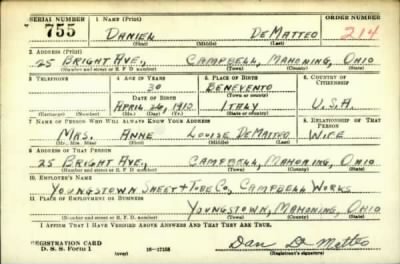 SERIAL NUMBER 1. NAME (Print) ORDER NUMBER
755 DANIEL DEMATTEO 214
(First) (Middle) (Last)
2. ADDRESS (Print)
25 BRIGHT AVE., CAMPBELL, MAHONING, OHIO
(Number and street or R. F. D. number) (Town) (County) (State)
3. TELEPHONE 4. AGE IN YEARS 5. PLACE OF BIRTH 6. COUNTRY OF CITIZENSHIP
30 BENEVENTO
DATE OF BIRTH (Town or county)
APRIL 26, 1910 ITALY U.S.A.
(Exchange) (Number) (Mo.) (Day) (Yr.) (State or country)
7. NAME OF PERSON WHO WILL ALWAYS KNOW YOUR ADDRESS 8. RELATIONSHIP OF THAT PERSON
MRS. ANNE LOUISE DEMATTEO WIFE
(Mr., Mrs., Miss) (First) (Middle) (Last)
9. ADDRESS OF THAT PERSON
25 BRIGHT AVE., CAMPBELL, MAHONING, OHIO
(Number and street or R. F. D. number) (Town) (County) (State)
10. EMPLOYER'S NAME
YOUNGSTOWN SHEET & TUBE CO., CAMPBELL WORKS
11. PLACE OF EMPLOYMENT OR BUSINESS
YOUNGSTOWN, MAHONING, OHIO
(Number and street or R. F. D. number) (Town) (County) (State)
I AFFIRM THAT I HAVE VERIFIED ABOVE ANSWERS AND THAT THEY ARE TRUE.
REGISTRATION CARD Dan De Matteo
D. S. S. Form 1 (over) 16—17105 (Registrant's signature)